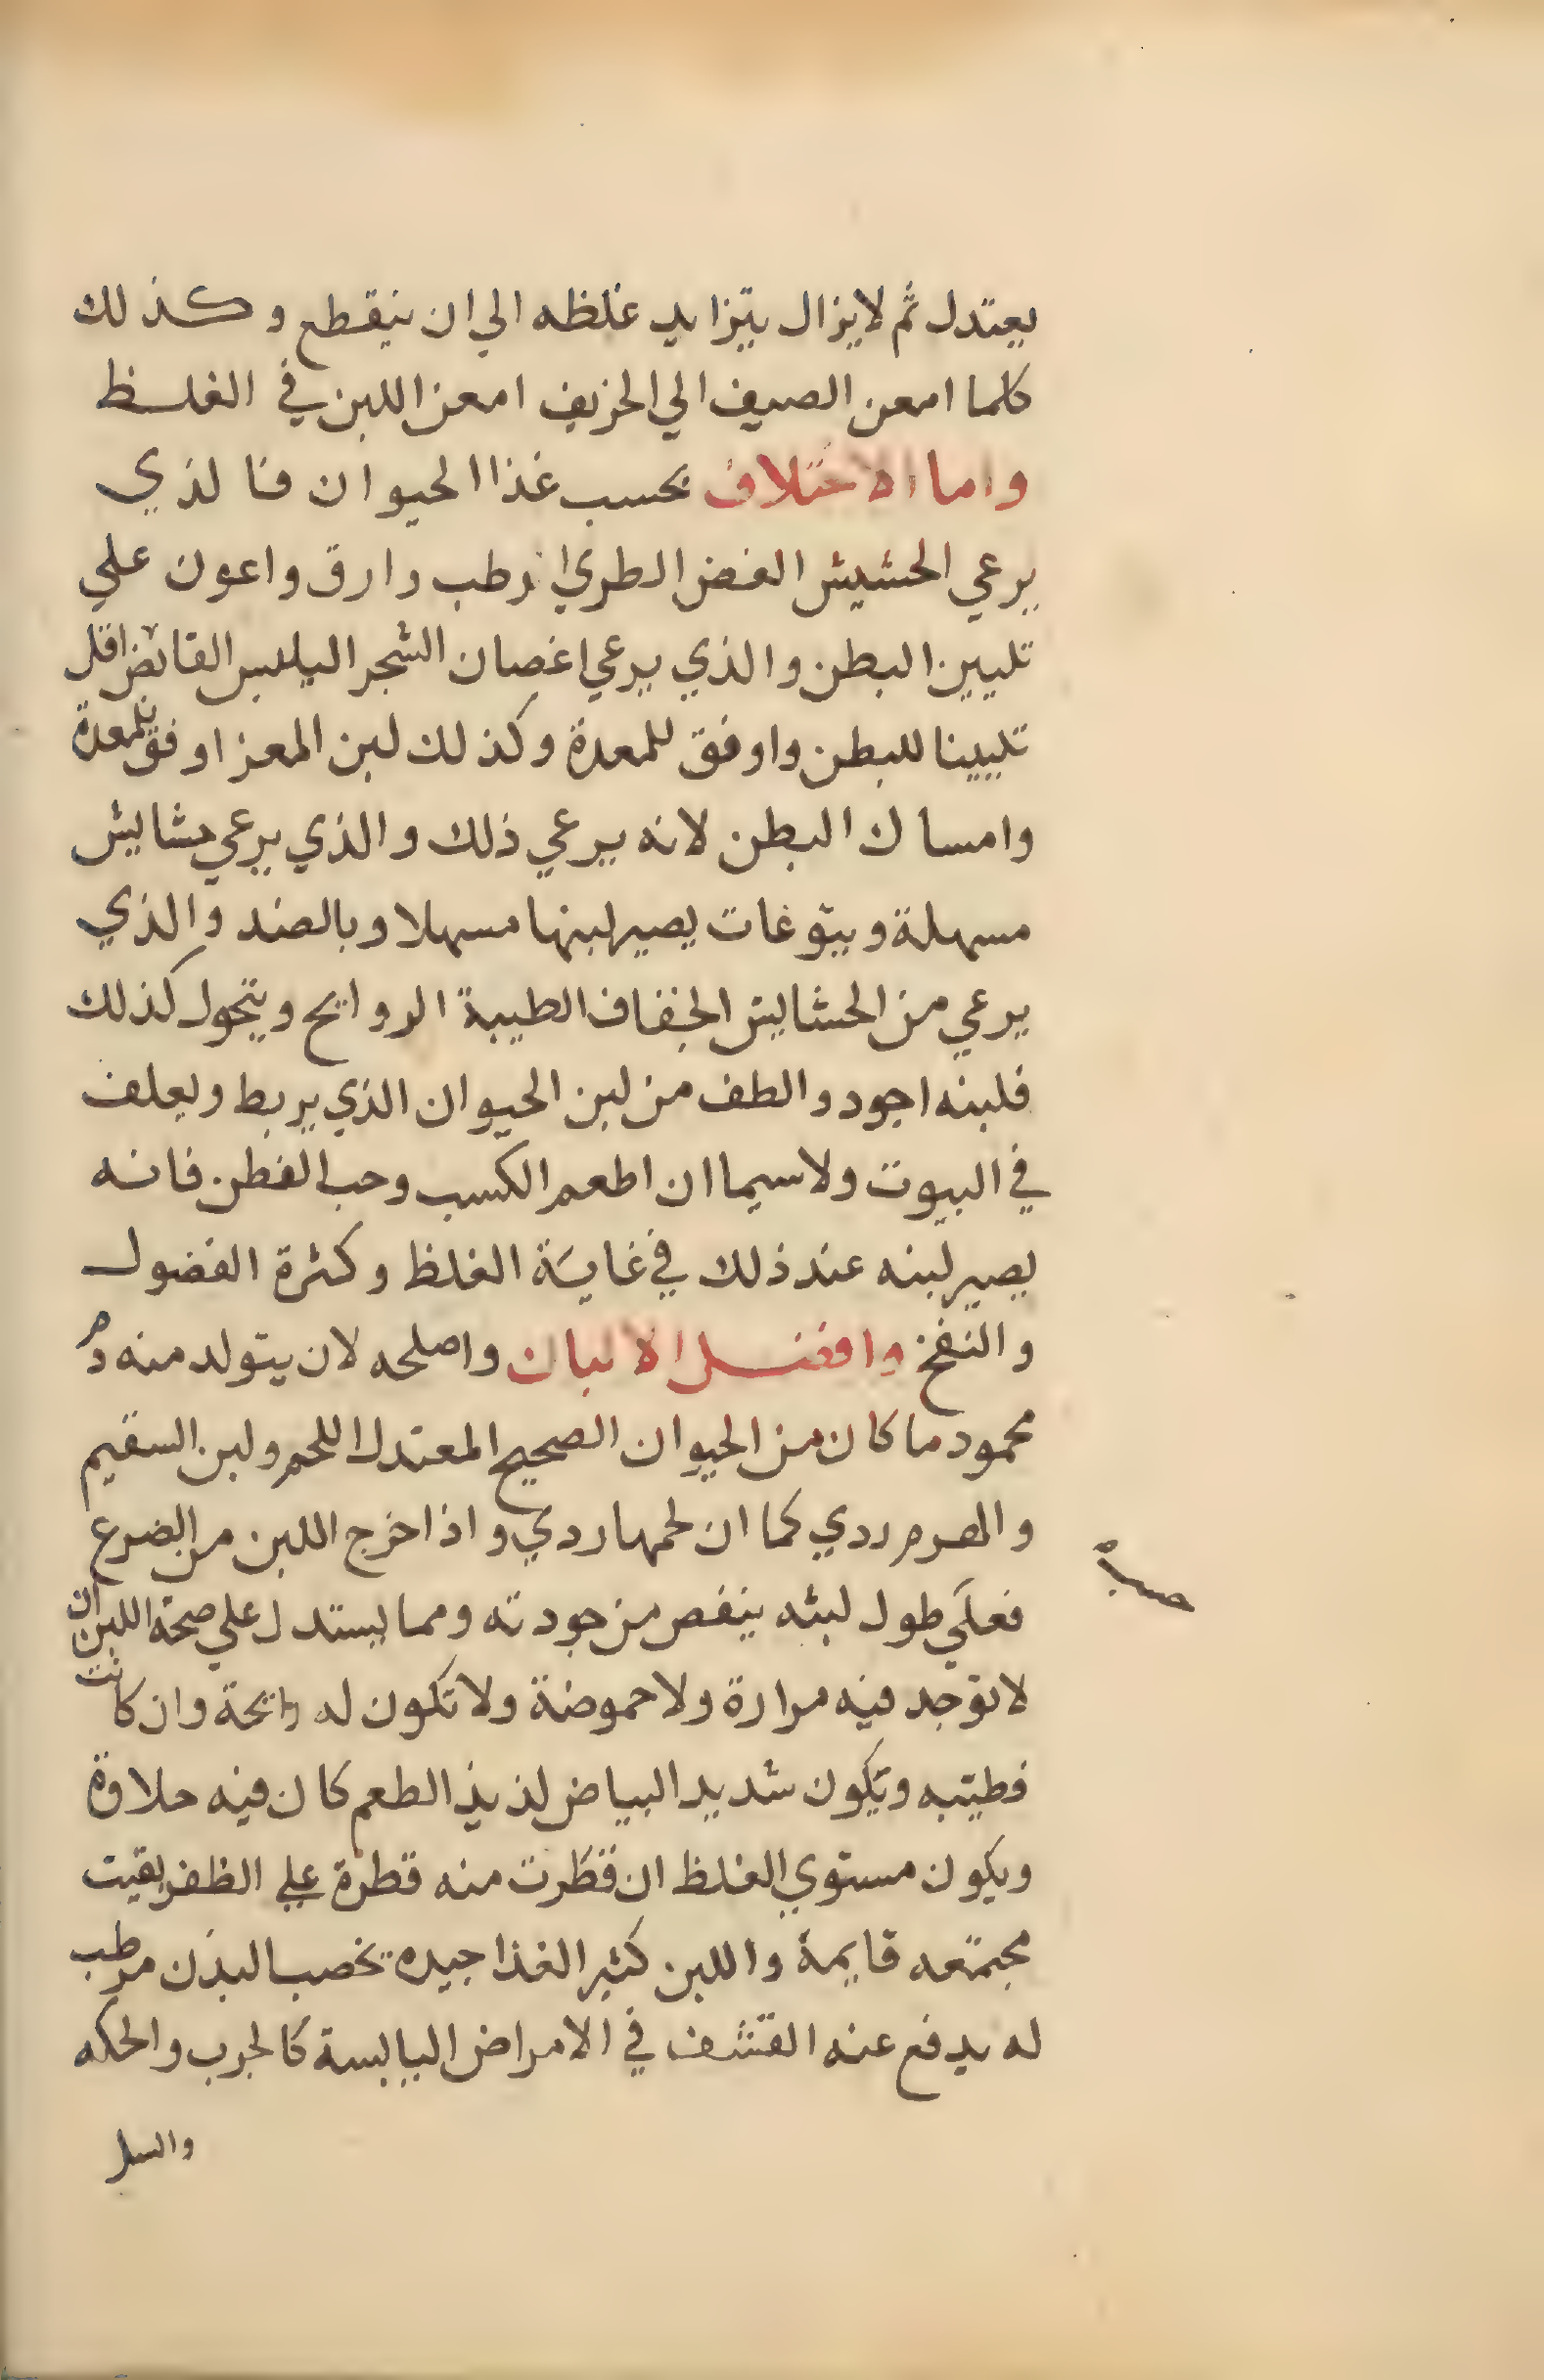 يعتدل ثم لايزال يتزايد غلظه الي ان ينقطع وكذلك
كلما امعن الصيف الي الخريف امعن اللبن في الغلظ
واما الاختلاف بحسب غذا الحيوان فالذي
يرعي الحشيش الغض الطري ارطب وارق واعون علي
تليين البطن والذي يرعي اغصان الشجر اليابس القابض اقل
تليينا للبطن واوفق للمعدة وكذلك لبن المعز اوفق للمعدة
وامساك البطن لانه يرعي ذلك والذي يرعي حشايش
مسهلة ويتوغات يصير لبنها مسهلا وبالضد والذي
يرعي من الحشايش الجفاف الطيبة الروايح ويتحول كذلك
فلبنه اجود والطف من لبن الحيوان الذي يربط ويعلف
في البيوت ولاسيما ان اطعم الكسب وحب القطن فانه
يصير لبنه عند ذلك في غاية الغلظ وكثرة الفضول
والنفخ وافضل الالبان واصلحه لان يتولد منه دم
محمود ما كان من الحيوان الصحيح المعتدل اللحم ولبن السقيم
والهرم ردي كما ان لحمها ردي واذا خرج اللبن من الضرع
فعلي طول لبثه ينقص من جودته ومما يستدل علي صحة اللبن ان
لا توجد فيه مرارة ولا حموضة ولا تكون له رائحة وان كانت
فطيبه ويكون شديد البياض لذيذ الطعم كان فيه حلاوة
ويكون مستوي الغلظ ان قطرت منه قطرة علي الظفر بقيت
مجتمعه قايمة واللبن كثير الغذا جيده تخصب البدن مرطب
له يدفع عنه القشف في الامراض اليابسة كالجرب والحكه
والسل